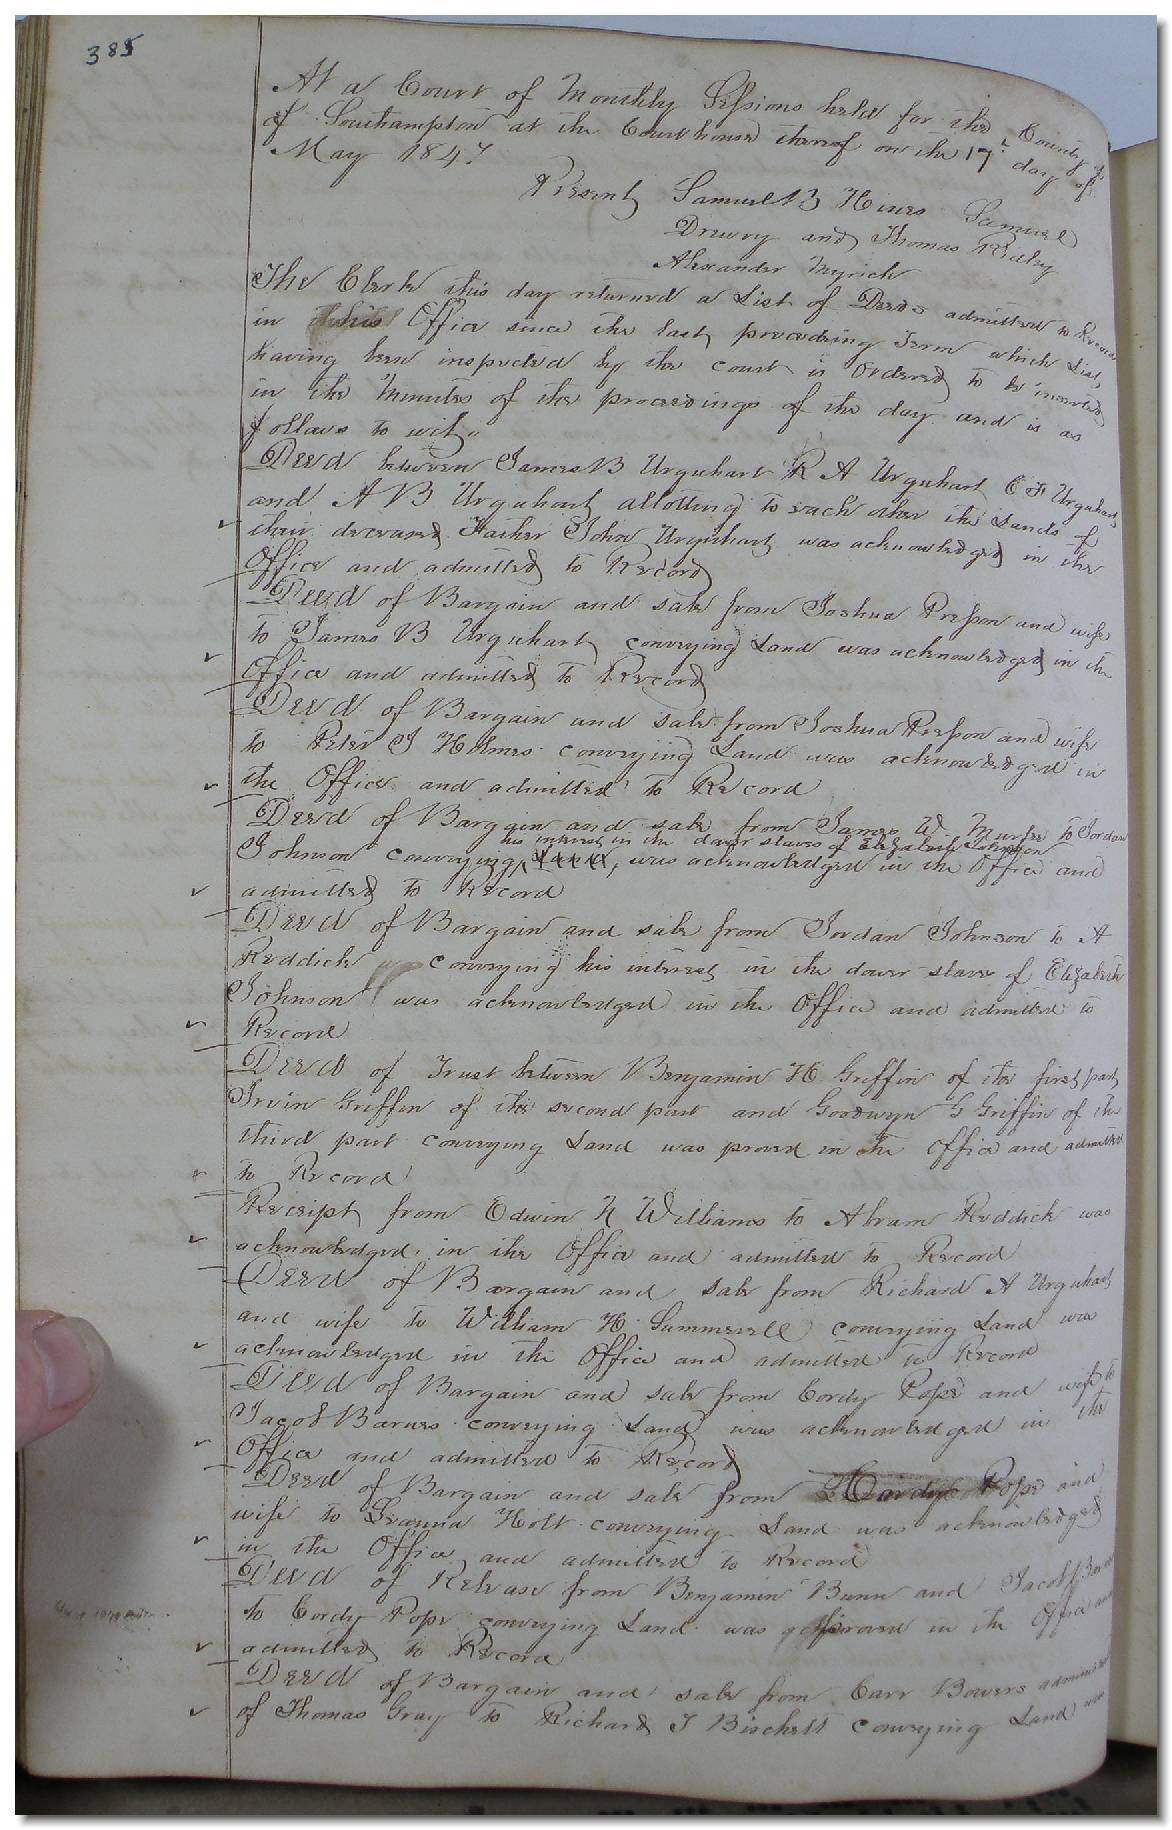 385
At a Court of Monthly Sessions held for the County
of Southampton at the Courthouse thereof on the 17th day of
May 1847
Present Samuel B Hines Samuel
Drewry and Thomas Ridley
Alexander Myrick
The Clerk this day returned a List of Deeds admitted to Record
in this Office since the last preceeding Term which List,
having been inspected by the court is Ordered to be inserted
in the Minutes of the proceedings of the day and is as
follows to wit,
Deed between James B Urquhart R A Urquhart C F Urquhart
and A B Urquhart allotting to each other the Lands of
their deceased Father John Urquhart was acknowledged in the
Office and admitted to Record
Deed of Bargain and sale from Joshua Presson and wife
to James B Urquhart conveying Land was acknowledged in the
Office and admitted to Record
Deed of Bargain and sale from Joshua Presson and wife
to Peter J Holmes conveying Land was acknowledged in
the Office and admitted to Record
Deed of Bargain and sale from James W Murfee to Jordan
his interest in the dower slaves of Elizabeth Johnson
Johnson conveying was acknowledged in the Office and
admitted to Record
Deed of Bargain and sale from Jordan Johnson to A
Reddick conveying his interest in the dower slaves of Elizabeth
Johnson was acknowledged in the Office and admitted to
Record
Deed of Trust between Benjamin H Griffin of the first part
Irvin Griffin of the second part and Goodwyn G Griffin of the
third part conveying Land was proved in the Office and admitted
to Record
Receipt from Edwin N Williams to Abram Reddick was
acknowledged in the Office and admitted to Record
Deed of Bargain and sale from Richard A Urquhart
and wife to William H Summerell conveying Land was
acknowledged in the Office and admitted to Record
Deed of Bargain and sale from Cordy Pope and wife to
Jacob Barnes conveying Land was acknowledged in the
Office and admitted to Record
Deed of Bargain and sale from Hardy Pope and
wife to Holt conveying Land was acknowledged
in the Office and admitted to Record
Deed of Release from Benjamin Bunn and Jacob
to Cordy Pope conveying Land was proved in the Office and
admitted to Record
Deed of Bargain and sale from Carr Bowers
of Thomas Gray to Richard J Bischett conveying Land was